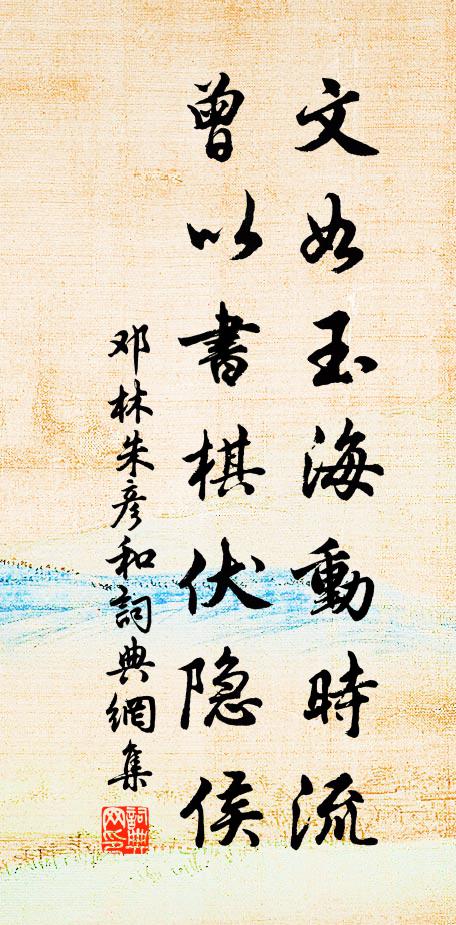 文如玉海動時流
曾以書棋伏隐侯
邓林朱彦和詞典網集
詞典网印